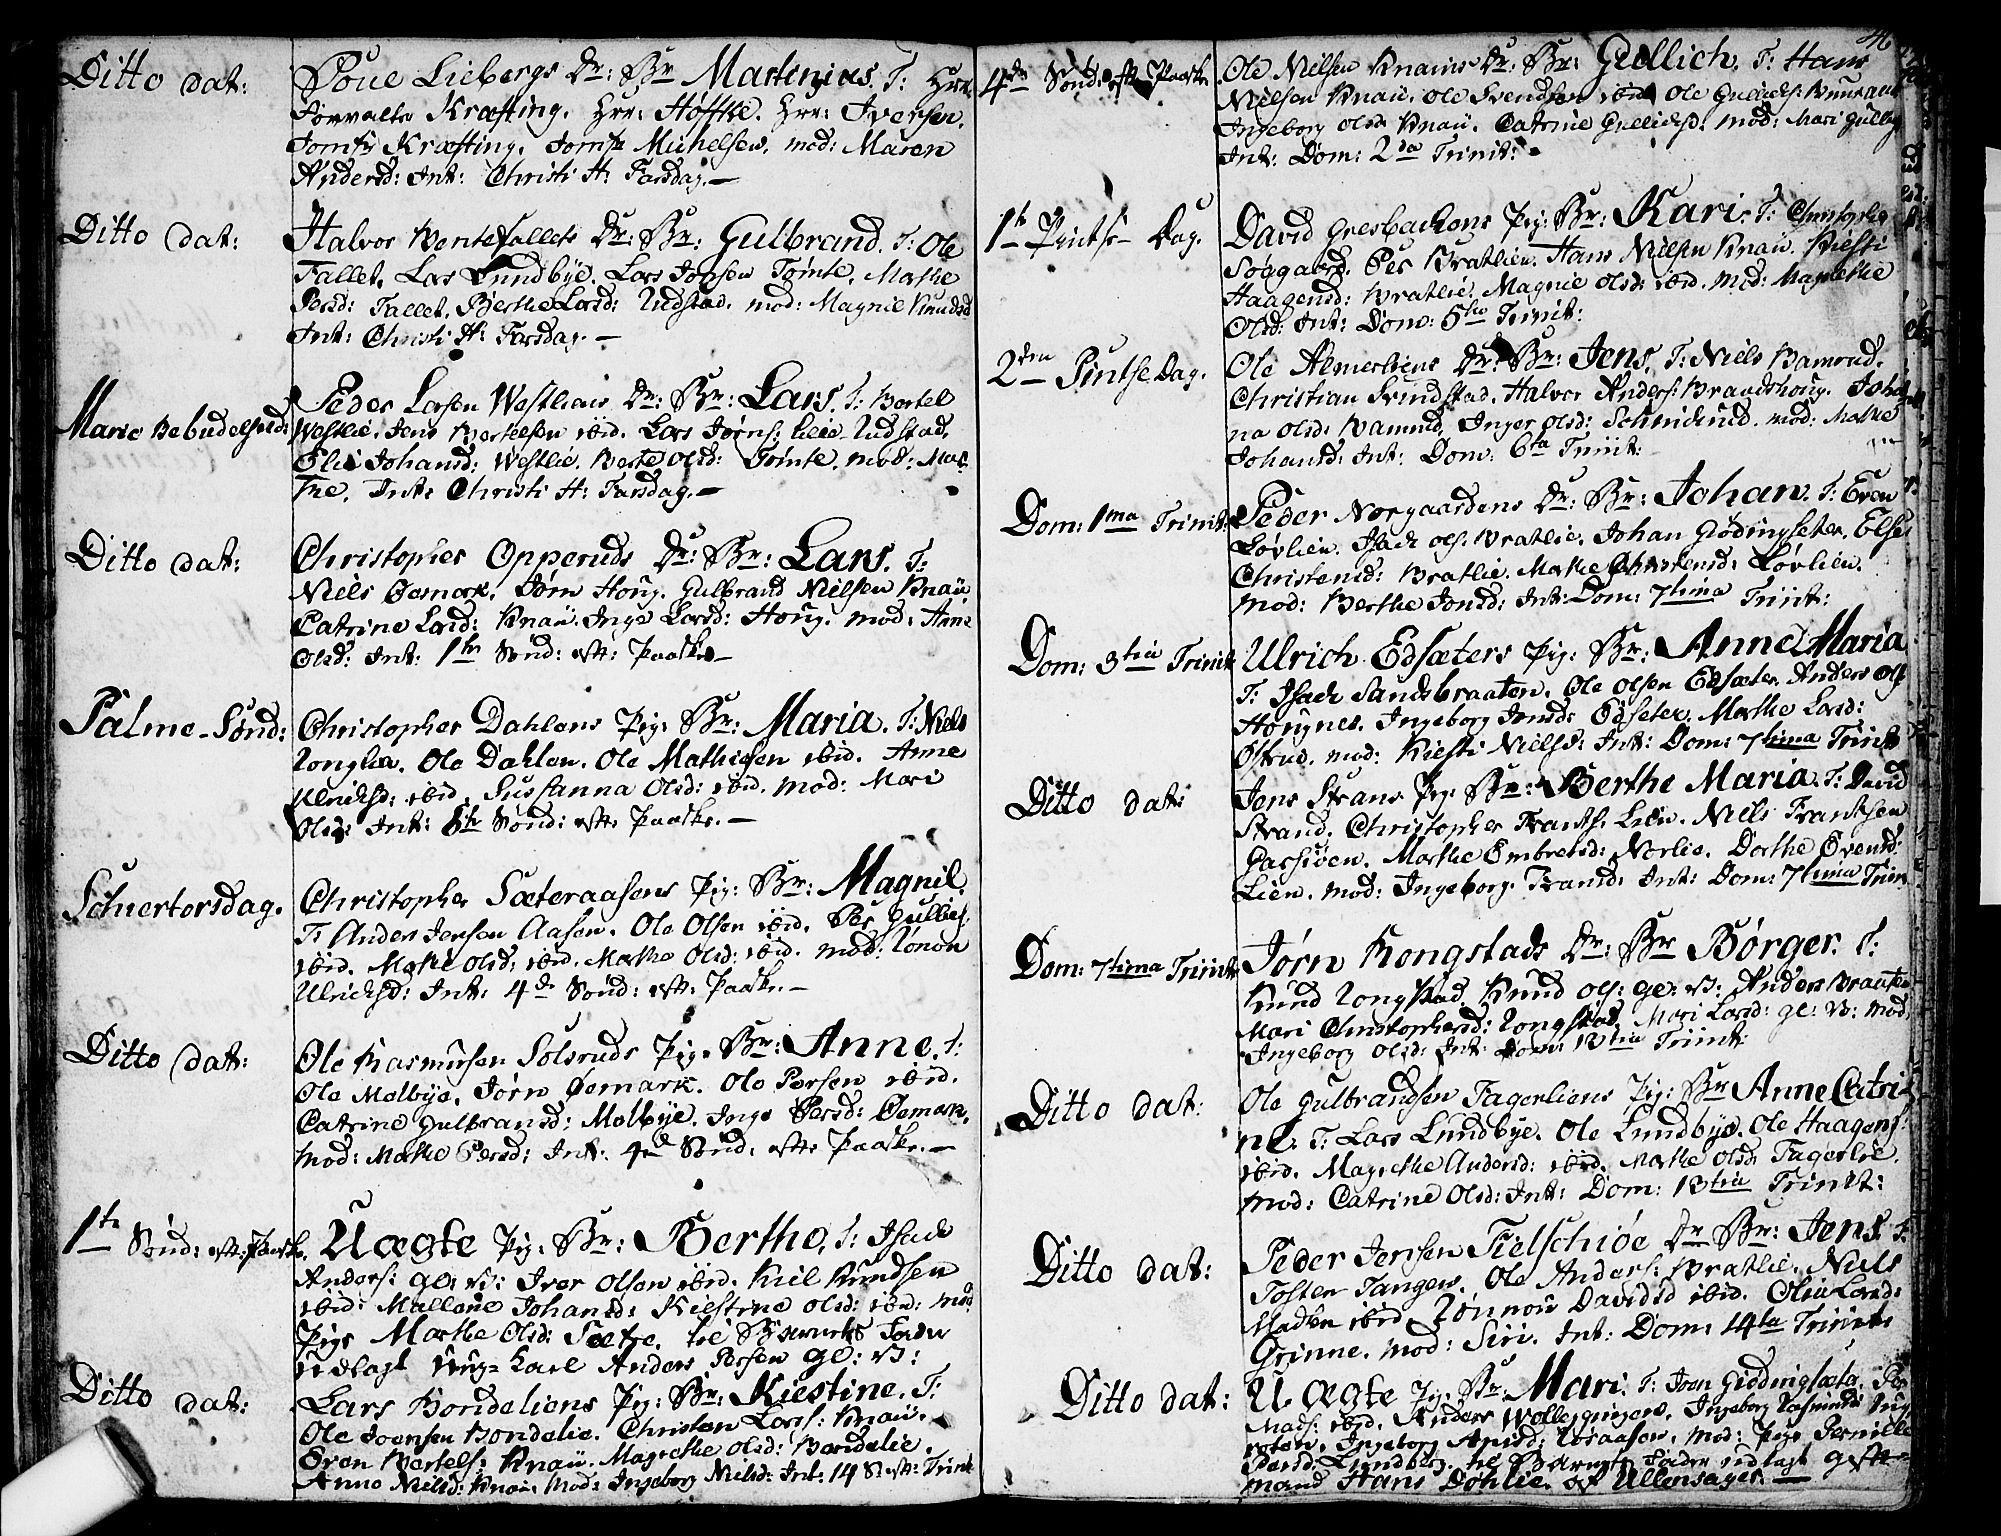 Ditto dat: Poue Liebergs Dr: Br Martinius. T: Hrr.
Forvalter Kræfting. Hrr: Höffthe. Hrr: Iversen.
Jomfr Kræfting. Jomfr Michelsen. mod: Maren
Andersd: Int: Christi H: Farsdag.—
Ditto dat: Halvor Wentefallets Dr: Br: Gulbrand. T: Ole
Fallet. Lars Lundbye. Lars Tømte. Marthe
Persd: Fallet. Berthe Larsd: Rudstad. mod: Magnil Knudsd
Int: Christi H: Farsdag.—
Mariæ Bebudelses Peder Larsen Westliens Dr: Br: Lars. T: Bertel
Westlie. Jens Bertelsen ibid. Lars Jørns: Rudstad.
Olia Johansd: Westlie. Berte Olsd: Tømte. mod: Mar-
the. Int: Christi H: Farsdag.—
Ditto dat: Christopher Opperuds Dr: Br: Lars. T:
Niels Oemark. Jørn Houg. Gulbrand Nielsen Knaü.
Catrine Larsd: Knaü. Inge Larsd: Houg. mod: Anne
Olsd: Int: 1te Sønd: eft: Paaske—
Palme-Sønd: Christopher Dahlens Pig: Br: Maria. T: Niels
Ronglia. Ole Dahlen. Ole Mathiesen ibid. Anne
Ulrichsd: ibid. Sussanna Olsd: ibid. mod: Mari
Olsd: Int: Sønd: eft: Paaske.—
Schiertorsdag. Christopher Sæteraasens Pig: Br: Magnil.
T: Anders Jensen Aasen. Ole Olsen ibid. Per Gulbs:
ibid. Marthe Olsd: ibid. Marthe Olsd: ibid. mod: Rønou
Ulrichsd: Int: 4de Sønd: eft: Paaske.—
Ditto dat: Ole Rasmussen Solsruds Pig: Br: Anne. T:
Ole Melbye. Jørn Øemark. Ole Persen ibid.
Catrine Gulbransd: Melbye. Inge Persd: Øemark.
mod: Marthe Persd: Int: 4de Sønd: eft: Paaske.—
1te Sønd: eft: Paaske. Uægte Pig: Br: Berthe. T: Isach
Anders: ge: V: Iver Olsen ibid. Kiel Knudsen
ibid: Mallene Johansd: Kiestine Olsd: ibid: mod
Pige Marthe Olsd: Sætre. til Barnets Fader
udlagt ung-Karl Anders Persen ge: V:
Ditto dat: Lars Bondeliens Pig: Br: Kiestine. T:
Ole Joensen Bondelie. Christen Larss: Knaü.
Even Bertels: Knaü. Magrethe Olsd: Bondelie.
Anne Nielsd: Knaü. Mod: Ingeborg Nielsd: Int: 14 S: eft: Trinit
46
4de Sønd: eft: Paaske Ole Nielsen Knaüs Dr: Br: Gullich. T: Hans
Nielsen Knaü. Ole Svendsen ibid Ole Gullichs:
Ingeborg Olsd: Knaü. Catrine Gullichsd: mod: Mari
Int: Dom: 2da Trinit:
1te Pintse-Dag. David Gresbachens Pig: Br: Kari. T: Christopher
Søgaard. Per Bratlien. Hans Nielsen Knaü. Kiesti
Haagensd: Bratlie. Magnie Olsd: ibid. mod: Magrethe
Olsd: Int: Dom: 5te Trinit:
2den Pintse Dag. Ole Almerliens Dr: Br: Jens. T: Niels Bamrud.
Christian Svindstad. Halvor Anders: Brandshoug. Joha-
na Olsd: Bamrud. Inger Olsd: Schmidrud. mod: Marthe
Johansd: Int: Dom: 6ta Trinit:
Dom: 1ma Trinit: Peder Norgaardens Dr: Br: Johan. T: Even
Løvlien. Isach Ols: Bratlie. Johan Gjødingseter. Else
Christensd: Bratlie. Marthe Christensd: Løvlien.
mod: Berthe Jonsd: Int: Dom: 7tima Trinit:
Dom: 3tia Trinit Ulrich Edsæters Pig: Br: Anne Maria
T: Isach Sandsbraaten. Ole Olsen Edsæter. Anders Ols
Hougnes. Ingeborg Jensd: Edseter. Marthe Larsd:
Østrud. mod: Kiesti Niels: Int: Dom: 7tima Trinit
Ditto dat: Jens Strans Pig: Br: Berthe Maria. T: David
Strand. Christopher Frants: Lien. Niels Frantsen
Garsiøen. Marthe Embretsd: Norlie. Dorthe Evensd:
Lien. mod: Ingeborg Fransd: Int: Dom: 7tima Trinit
Dom: 7tima Trinit Jørn Rongstads Dr: Br Børger. T:
Knud Rongstad. Knud Ols: ge: V: Anders Braaten
Mari Christophersd: Rongstad. Mari Larsd: ge: V: mod.
Ingeborg Olsd: Int: Dom: 13tia Trinit:
Ditto dat: Ole Gulbrandsen Fagerliens Pig: Br Anne Catri-
ne. T: Lars Lundbye. Ole Lundbye. Ole Haagens:
ibid. Magrethe Andersd: ibid. Marthe Olsd: Fagerlie.
mod: Catrine Olsd: Int: Dom: 13tia Trinit:
Ditto dat: Peder Jensen Fielschiøe Dr Br: Jens. T:
Tosten Tangen. Ole Anders: Bratlie. Niels
Madsen ibid. Rønnou Davidsd ibid. Olia Larsd:
Grinne. mod: Siri. Int: Dom: 14ta Trinit:
Ditto dat: Uægte Pig: Br: Mari. T: Joen Giødingsæter. Per
Mads: ibid. Anders Wolleggingen. Ingeborg Rasmusd:
Ingeborg Roraasen. mod: Pige Pernille
Persd: Lundberg. til Barnets Fader udlagt gifte
mand Hans Døhlie. af Ullensager.—